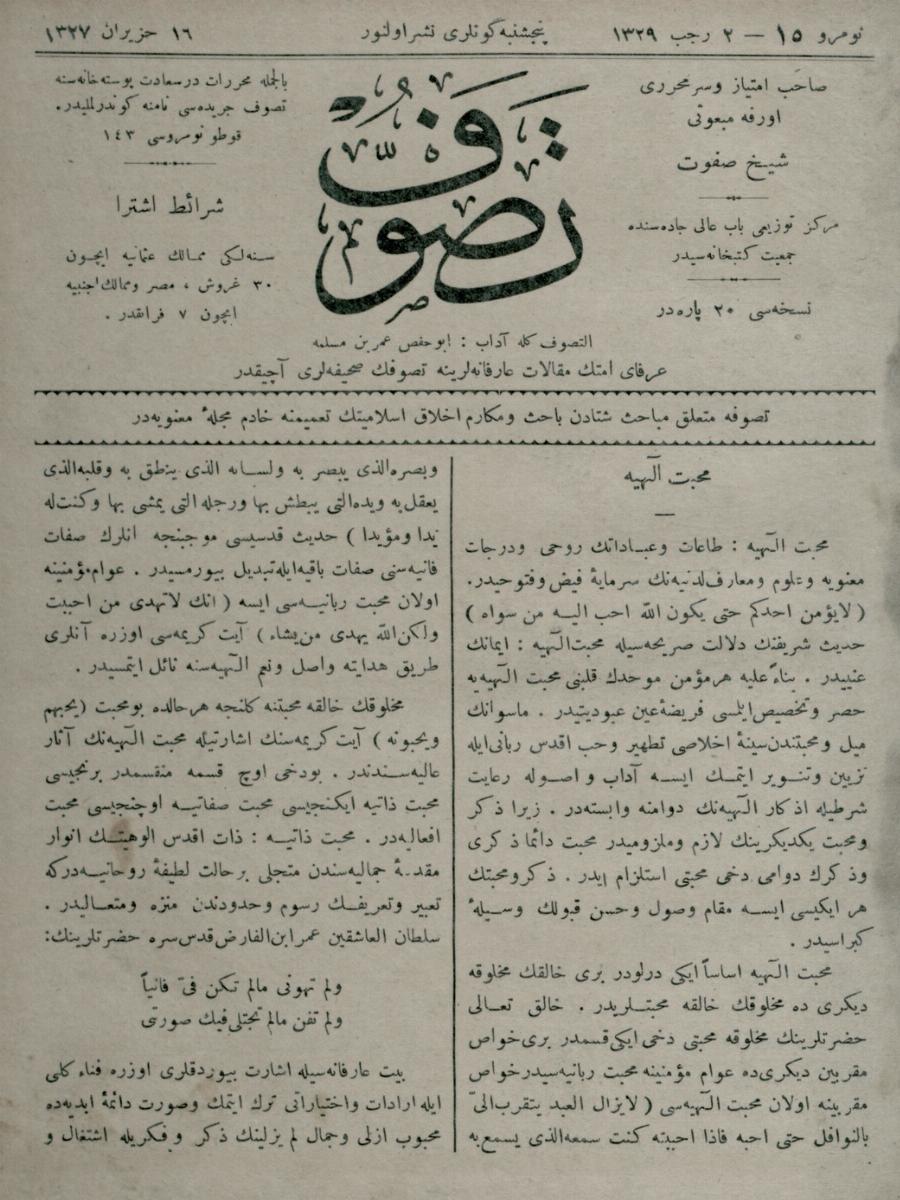 نومرو ١٥ — ٢ رجب ١٣٢٩
پنجشنبه كونلری نشر اولنور
١٦ حزیران ١٣٢٧
صاحب امتیاز وسرمحرری
اورفه مبعوثی
شیخ صفوت
مركز توزیعی باب عالی جاده‌سنده
جمعیت كتبخانه‌سیدر
نسخه‌سی ٢٠ پاره‌در
تصوف
بالجمله محررات درسعادت پوسته‌خانه‌سنه
تصوف جریده‌سی نامنه كوندرلملیدر.
قوطو نومروسی ١٤٣
شرائط اشترا
سنه‌لكی ممالك عثمانیه ایچون
٣٠ غروش ، مصر وممالك اجنبیه
ایچون ٧ فرانقدر .
التصوف كله آداب : ابوحفص عمر بن مسلمه
عرفای امتك مقالات عارفانه‌لرینه تصوفك صحیفه‌لری آچیقدر
تصوفه متعلق مباحث شتادن باحث ومكارم اخلاق اسلامیتك تعمیمنه خادم مجلهٔ معنویه‌در
محبت الٓهیه
محبت الٓهیه : طاعات وعباداتك روحی ودرجات
معنویه وعلوم ومعارف لدنیه‌نك سرمایهٔ فیض وفتوحیدر.
( لایؤمن احدكم حتی یكون الله احب الیه من سواه )
حدیث شریفنك دلالت صریحه‌سیله محبت الٓهیه : ایمانك
عنیدر . بناءً علیه هرمؤمن موحدك قلبنی محبت الٓهیه‌یه
حصر وتخصیص ایلمسی فریضهٔ عین عبودیتیدر . ماسوانك
میل ومحبتندن سینهٔ اخلاصی تطهیر وحب اقدس ربانی ایله
تزیین وتنویر ایتمك ایسه آداب واصوله رعایت
شرطیله اذكار الٓهیه‌نك دوامنه وابسته‌در . زیرا ذكر
ومحبت یكدیكرینك لازم وملزومیدر محبت دائما ذكری
وذكرك دوامی دخی محبتی استلزام ایدر . ذكرومحبتك
هر ایكیسی ایسه مقام وصول وحسن قبولك وسیلهٔ
كبراسیدر .
محبت الٓهیه اساساً ایكی درلودر بری خالقك مخلوقه
دیكری ده مخلوقك خالقه محبتلریدر . خالق تعالی
حضرتلرینك مخلوقه محبتی دخی ایكی قسمدر بری خواص
مقربین دیكری‌ده عوام مؤمنینه محبت ربانیه‌سیدرخواص
مقربینه اولان محبت الٓهیه‌سی ( لایزال العبد یتقرب الیّ
بالنوافل حتی احبه فاذا احببته كنت سمعه‌الذی یسمع‌به
وبصره‌الذی یبصر به ولسانه الذی ینطق به وقلبه‌الذی
یعقل‌به ویده‌التی یبطش بها ورجله التی یمشی بها وكنت‌له
یدا ومؤیدا ) حدیث قدسیسی موجبنجه انلرك صفات
فانیه‌سنی صفات باقیه‌ایله‌تبدیل بیورمسیدر . عوام‌مؤمنینه
اولان محبت ربانیه‌سی ایسه ( انك لاتهدی من احببت
ولكن‌الله یهدی من‌یشاء ) آیت كریمه‌سی اوزره آنلری
طریق هدایته واصل ونعم الٓهیه‌سنه نائل ایتمسیدر .
مخلوقك خالقه محبتنه كلنجه هرحالده بومحبت ( یحبهم
ویحبونه ) آیت كریمه‌سنك اشارتیله محبت الٓهیه‌نك آثار
عالیه‌سندندر . بودخی اوچ قسمه منقسمدر برنجیسی
محبت ذاتیه ایكنجیسی محبت صفاتیه اوچنجیسی محبت
افعالیه‌در . محبت ذاتیه : ذات اقدس الوهیتك انوار
مقدسهٔ جمالیه‌سندن متجلی برحالت لطیفهٔ روحانیه‌دركه
تعبیر وتعریفك رسوم وحدودندن منزه ومتعالیدر .
سلطان العاشقین عمر ابن‌الفارض‌قدس‌سره حضرتلرینك:
ولم تهونی مالم تكن فیّ فانیاً
ولم تفن مالم تجتلی‌فیك صورتی
بیت عارفانه‌سیله اشارت بیوردقلری اوزره فناء كلی
ایله ارادات واختیاراتی ترك ایتمك وصورت دائمهٔ ابدیه‌ده
محبوب ازلی وجمال لم یزلینك ذكر وفكریله اشتغال و